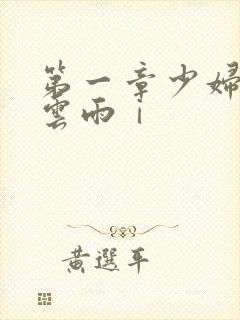 第一章少婦
雲雨｜
黃選平